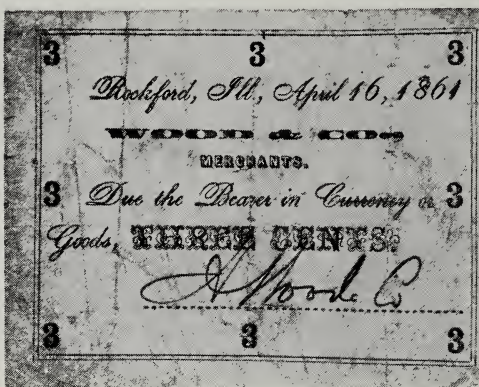 3 3 3
Rockford, Ill, April 16, 1861
WOOD & CO.
MERCHANTS.
3 Due the Bearer in Currency or 3
Goods, THREE CENTS.
Wood & Co
3 3 3